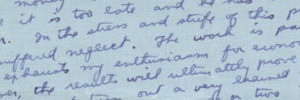 money
it is too late and he has
In the stress and strife of this p
suffered neglect. The work is pa
exhausts my enthusiasm for econo
er, the results will ultimately prove
out a very strained
or two